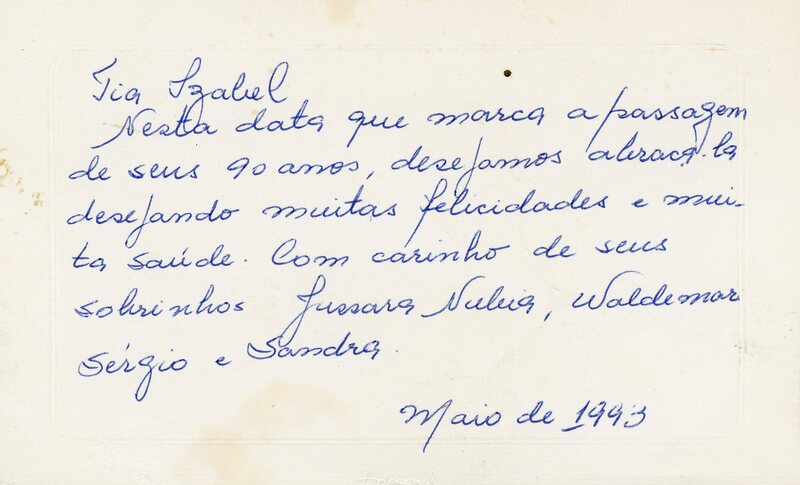 Tia Izabel
Nesta data que marca a passagem
de seus 90 anos, desejamos abraçá-la
desejando muitas felicidades e mui-
ta saúde. Com carinho de seus
sobrinhos Jussara Nubia, Waldemar
Sérgio e Sandra.
Maio de 1993